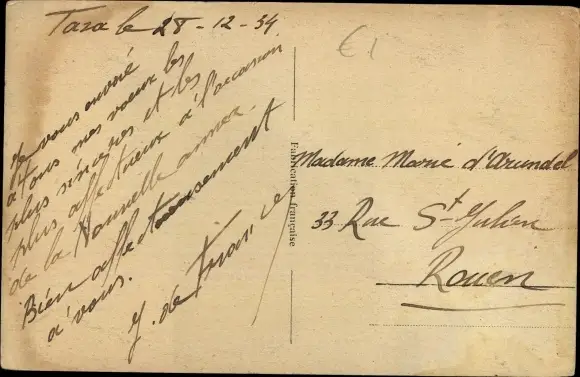 Taza le 28-12-34
Je vous envoie
à tous mes voeux les
plus sincères et les
plus affectueux à l'occasion
de la Nouvelle année.
Bien affectueusement
à vous.
Y. de
€1
Fabrication française
Madame Marie d'Arundel
33 Rue St Julien
Rouen